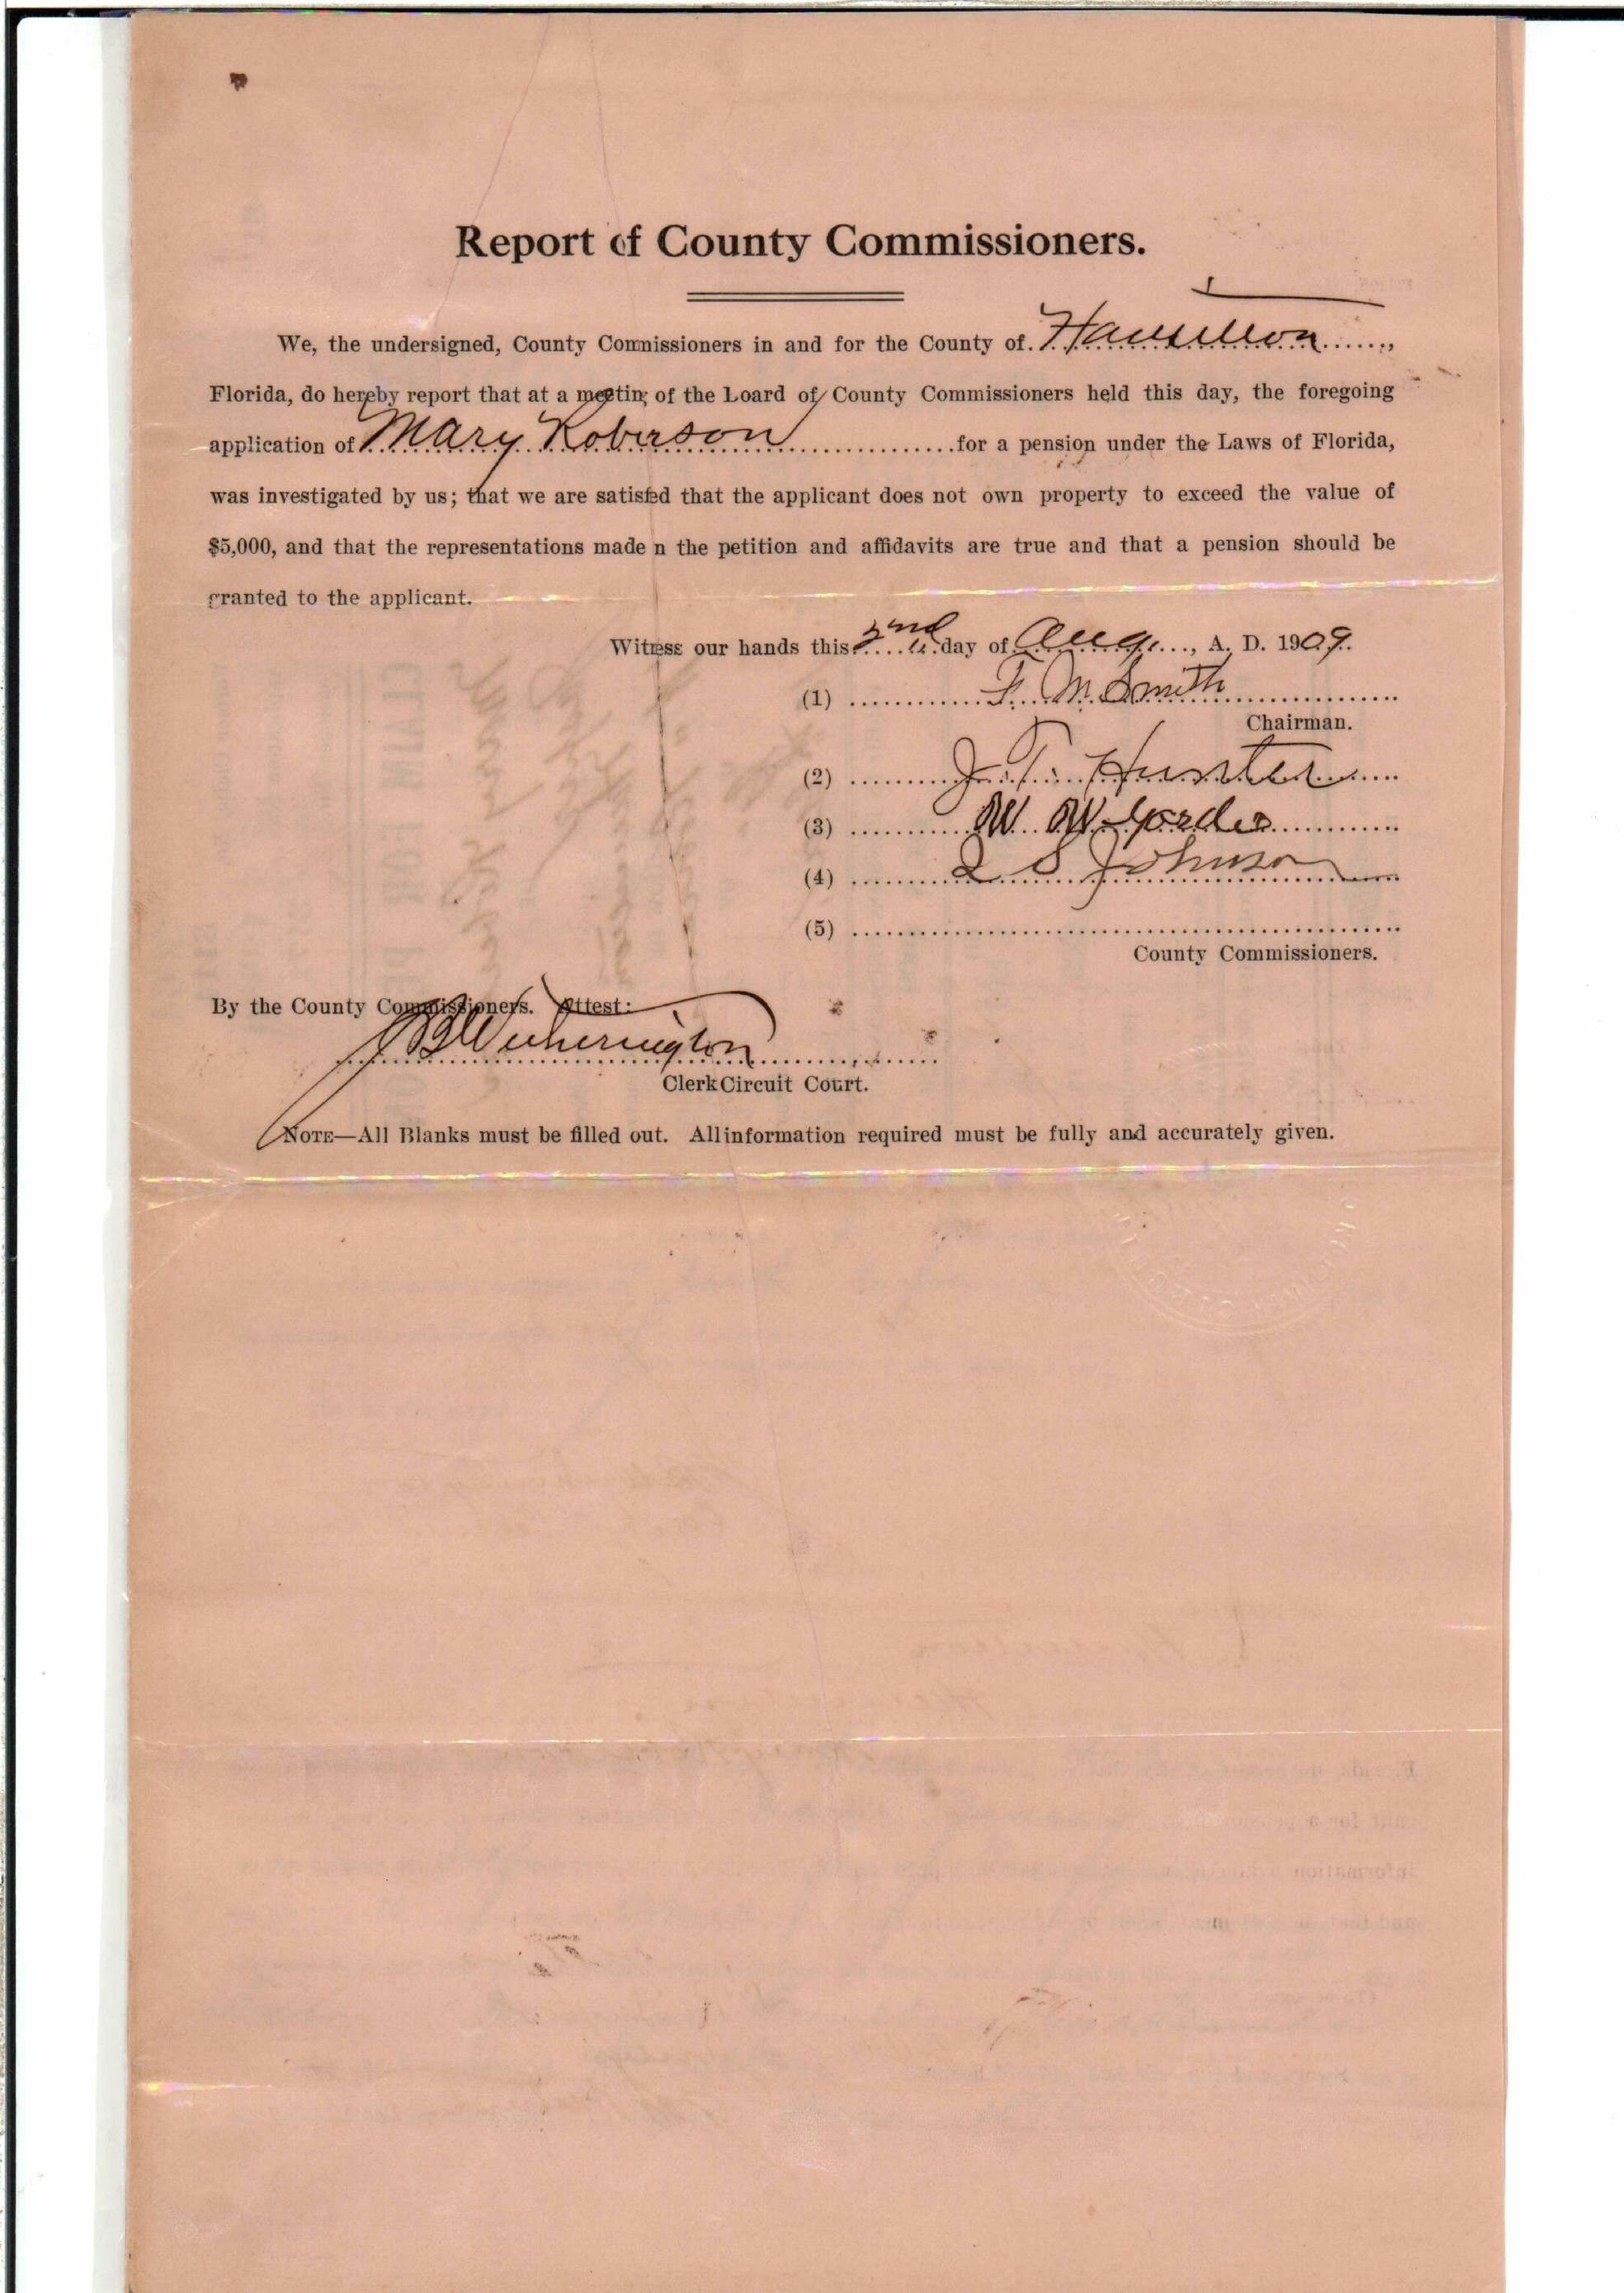 Report of County Commissioners.
We, the undersigned, County Commissioners in and for the County of Hamilton,
Florida, do hereby report that at a meeting of the Board of County Commissioners held this day, the foregoing
application of Mary Roberson for a pension under the Laws of Florida,
was investigated by us; that we are satisfied that the applicant does not own property to exceed the value of
$5,000, and that the representations made in the petition and affidavits are true and that a pension should be
granted to the applicant.
Witness our hands this 2nd day of Aug., A. D. 1909.
(1) F. M. Smith
Chairman.
(2) J. T. Hunter
(3) W. W.
(4) S Johnson
(5)
County Commissioners.
By the County Commissioners. Attest:
Witherington
Clerk Circuit Court.
NOTE—All Blanks must be filled out. All information required must be fully and accurately given.